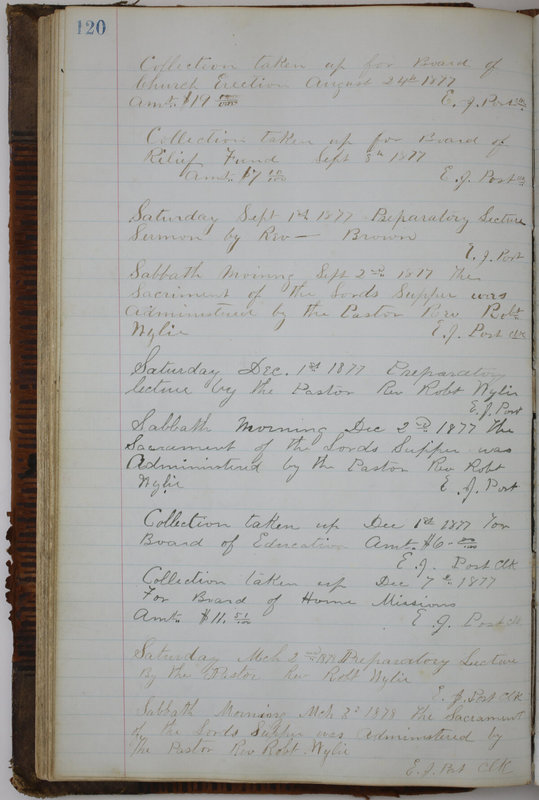 120
Collection taken up for Board of
Church Erection August 24th 1877
Amt. $19
E. J. Post clk
Collection taken up for Board of
Rilief Fund Sept 8th 1877
Amt. $7
E. J. Post clk
Saturday Sept 1st 1877 Preparatory Lecture
Sermon by Rev — Brown
E. J. Post
Sabbath Morning Sept 2nd 1877 the
Sacriment of the Lords Supper was
Administered by the Pastor Rev Robt
Wylie E. J. Post clk
Saturday Dec. 1st 1877 Preparatory
lecture by the Pastor Rev Robt Wylie
E. J. Post
Sabbath Morning Dec 2nd 1877 the
Sacrament of the Lords Supper was
Administered by the Pastor Rev Robt
Wylie E. J. Post
Collection taken up Dec 1st 1877 For
Board of Education Amt. $6
E. J. Post clk
Collection taken up Dec 7th 1877
For Board of Home Missions
Amt. $11. 51/100 E J. Post clk
Saturday Mch 2nd 1878 Preparatory Lecture
By the Pastor Rev Robt Wylie
E. J. Post Clk
Sabbath Morning Mch 3d 1878 the Sacrament
of the Lords Supper was Administered by
the Pastor Rev Robt. Wylie
E. J. Post Clk